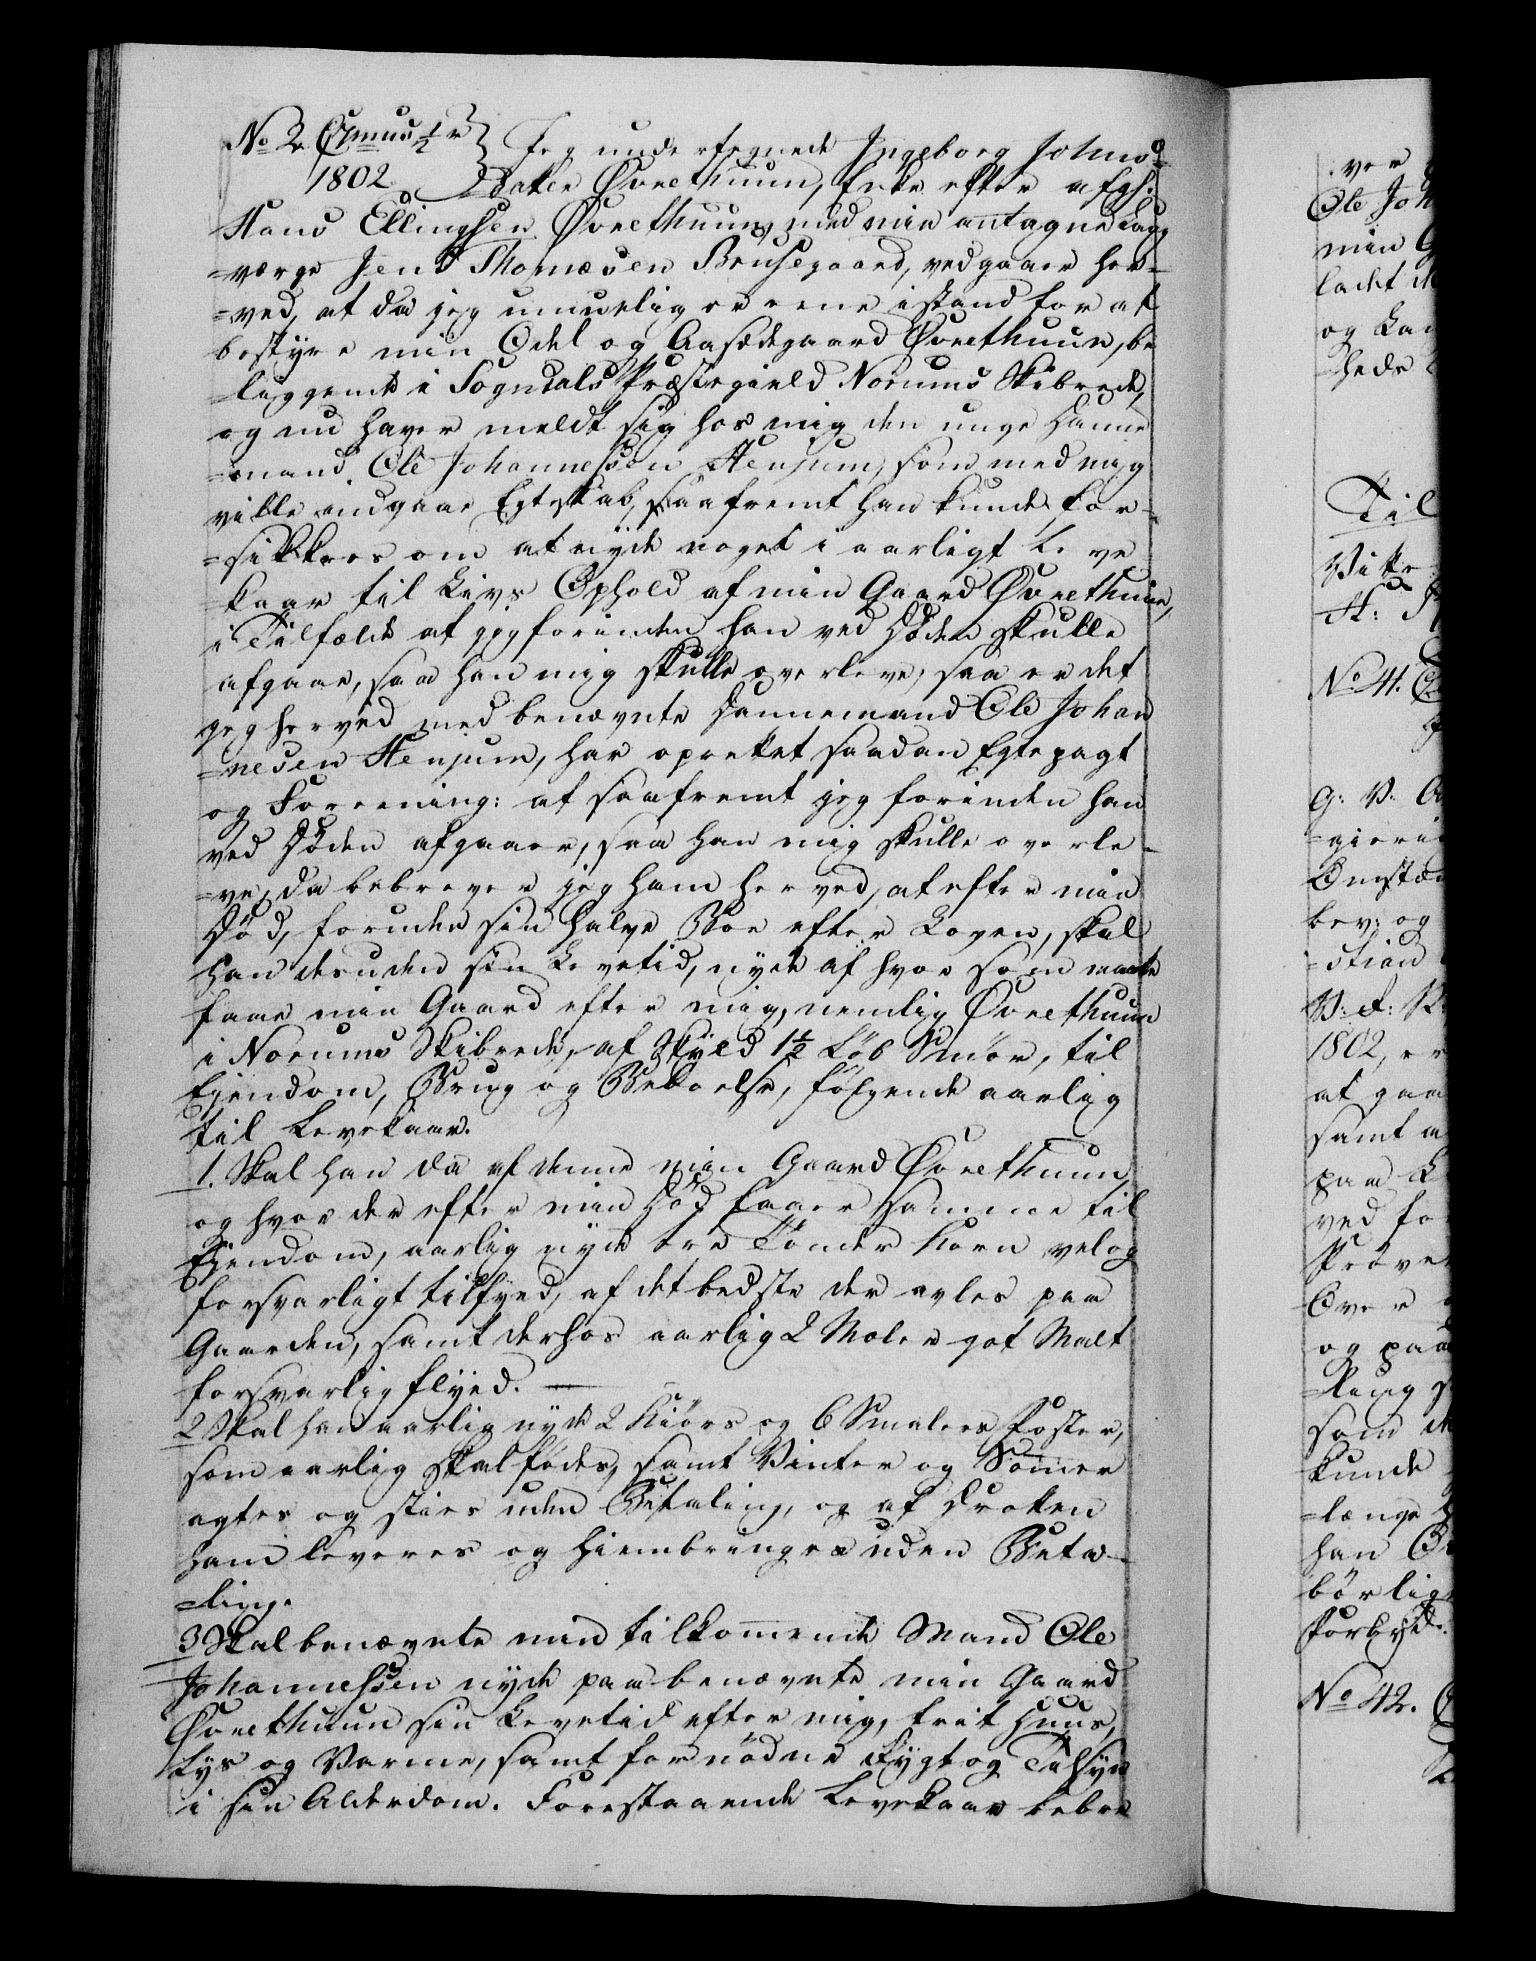 No 2. Cmus 1/2 r
1802.
Jeg undertegnede Ingeborg Johns=
Datter Øvrethuun, Enke efter afg:
Hans Ellingsen Øvrethuun, med min antagne Laug
=værge Jens Thomesen Brusegaard, vedgaar her=
=ved, at da jeg umuelig er ene istand for at
bestyre min Odel og Aasædegaard Øvrethuun, be
liggende i Sogndals Præstegield Norums Skibrede,
og nu haver meldt sig hos mig den unge Danne
=mand Ole Johannessen Henjum, som med mig
ville indgaae Egteskab, saafremt han kunde for=
=sikkres om at nyde noget i aarligt Leve
kaar til Livs Ophold af min Gaard Øvrethuun,
i Tilfælde at jeg forinden han ved Døden skulle
afgaae, saa han mig skulle overleve; saa er det
jeg herved med benævnte Dannemand Ole Johan
=nesen Henjum, har oprettet saadan Egtepagt
og Foreening: at saafremt jeg forinden han
ved Døden afgaaer, saa han mig skulle overle=
=ve, da bebrever jeg ham herved, at efter min
Død, foruden sin halve Boe efter Loven, skal
han desuden sin Levetid, nyde af hvor som maatte
faae min Gaard efter mig, nemlig Øvrethuun
i Norums Skibrede, af Skyld 1½ Løb Smør, til
Ejendom, Brug og Beboelse, følgende aarlig
til Levekaar.
1. Skal han da af denne min Gaard Øvrethuun,
og hvor der efter min Død faaer samme til
Ejendom, aarlig nyde tre Tønder Korn vel og
forsvarligt tilflyed, af det bedste der avles paa
Gaarden, samt derhos aarlig 2 Moler got Malt
forsvarlig flyed. —
2 Skal han aarlig nyde 2 Kiørs og 6 Smalers Foster,
som aarlig skal fødes, samt Vinter og Somer
agtes og sties uden Betaling, og af Drotten
ham leveres og hiembringes uden Beta=
=ling.
3 Skal benævnte min tilkomende Mand Ole
Johannessen nyde paa benævnte min Gaard
Øvrethuun sin Levetid efter mig, frit Huus,
Lys og Varme, samt fornødne Rygt og Tilsyn
i sin Alderdom. Forestaaende Levekaar bebre
ver
Ole Joh
min G
ladt
og Lau
hede
Til
Vitte
H:
No 41.
G: V:
=gierin
Omstæn
bev: og
=stian
V: d:
1802, er
at gaa
samt a
paa
ved for
Prøve
Over
og paa
=ling
som
kunde
=længe
han
børlig
Forbyde
No 42.